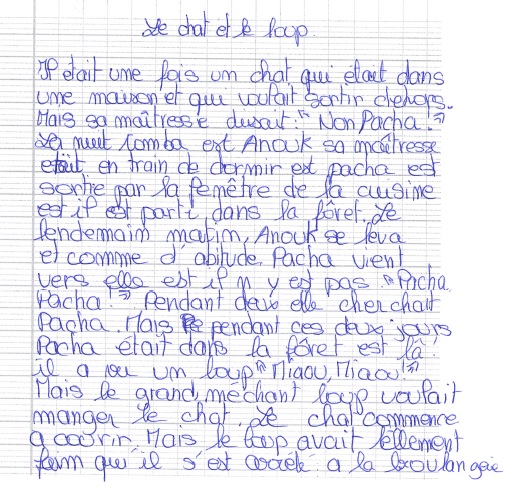 Le chat et le loup.
Il était une fois un chat qui était dans
une maison et qui voulait sortir dehors.
Mais sa maîtresse disait : "Non Pacha !"
La nuit tomba est Anouk sa maîtresse
était en train de dormir est pacha est
sortie par la fenêtre de la cuisine
est il est parti dans la fôret. Le
lendemain matin, Anouk se leva
et comme d'abitude Pacha vient
vers elle est il n y est pas. "Pacha,
Pacha !" Pendant deux elle cherchait
Pacha. Mais pendant ces deux jours
Pacha était dans la fôret est là
il a vu un loup "Miaou, Miaou !"
Mais le grand méchant loup voulait
manger le chat. Le chat commence
a courir. Mais le loup avait tellement
faim qu'il s'est arrété a la boulangeie